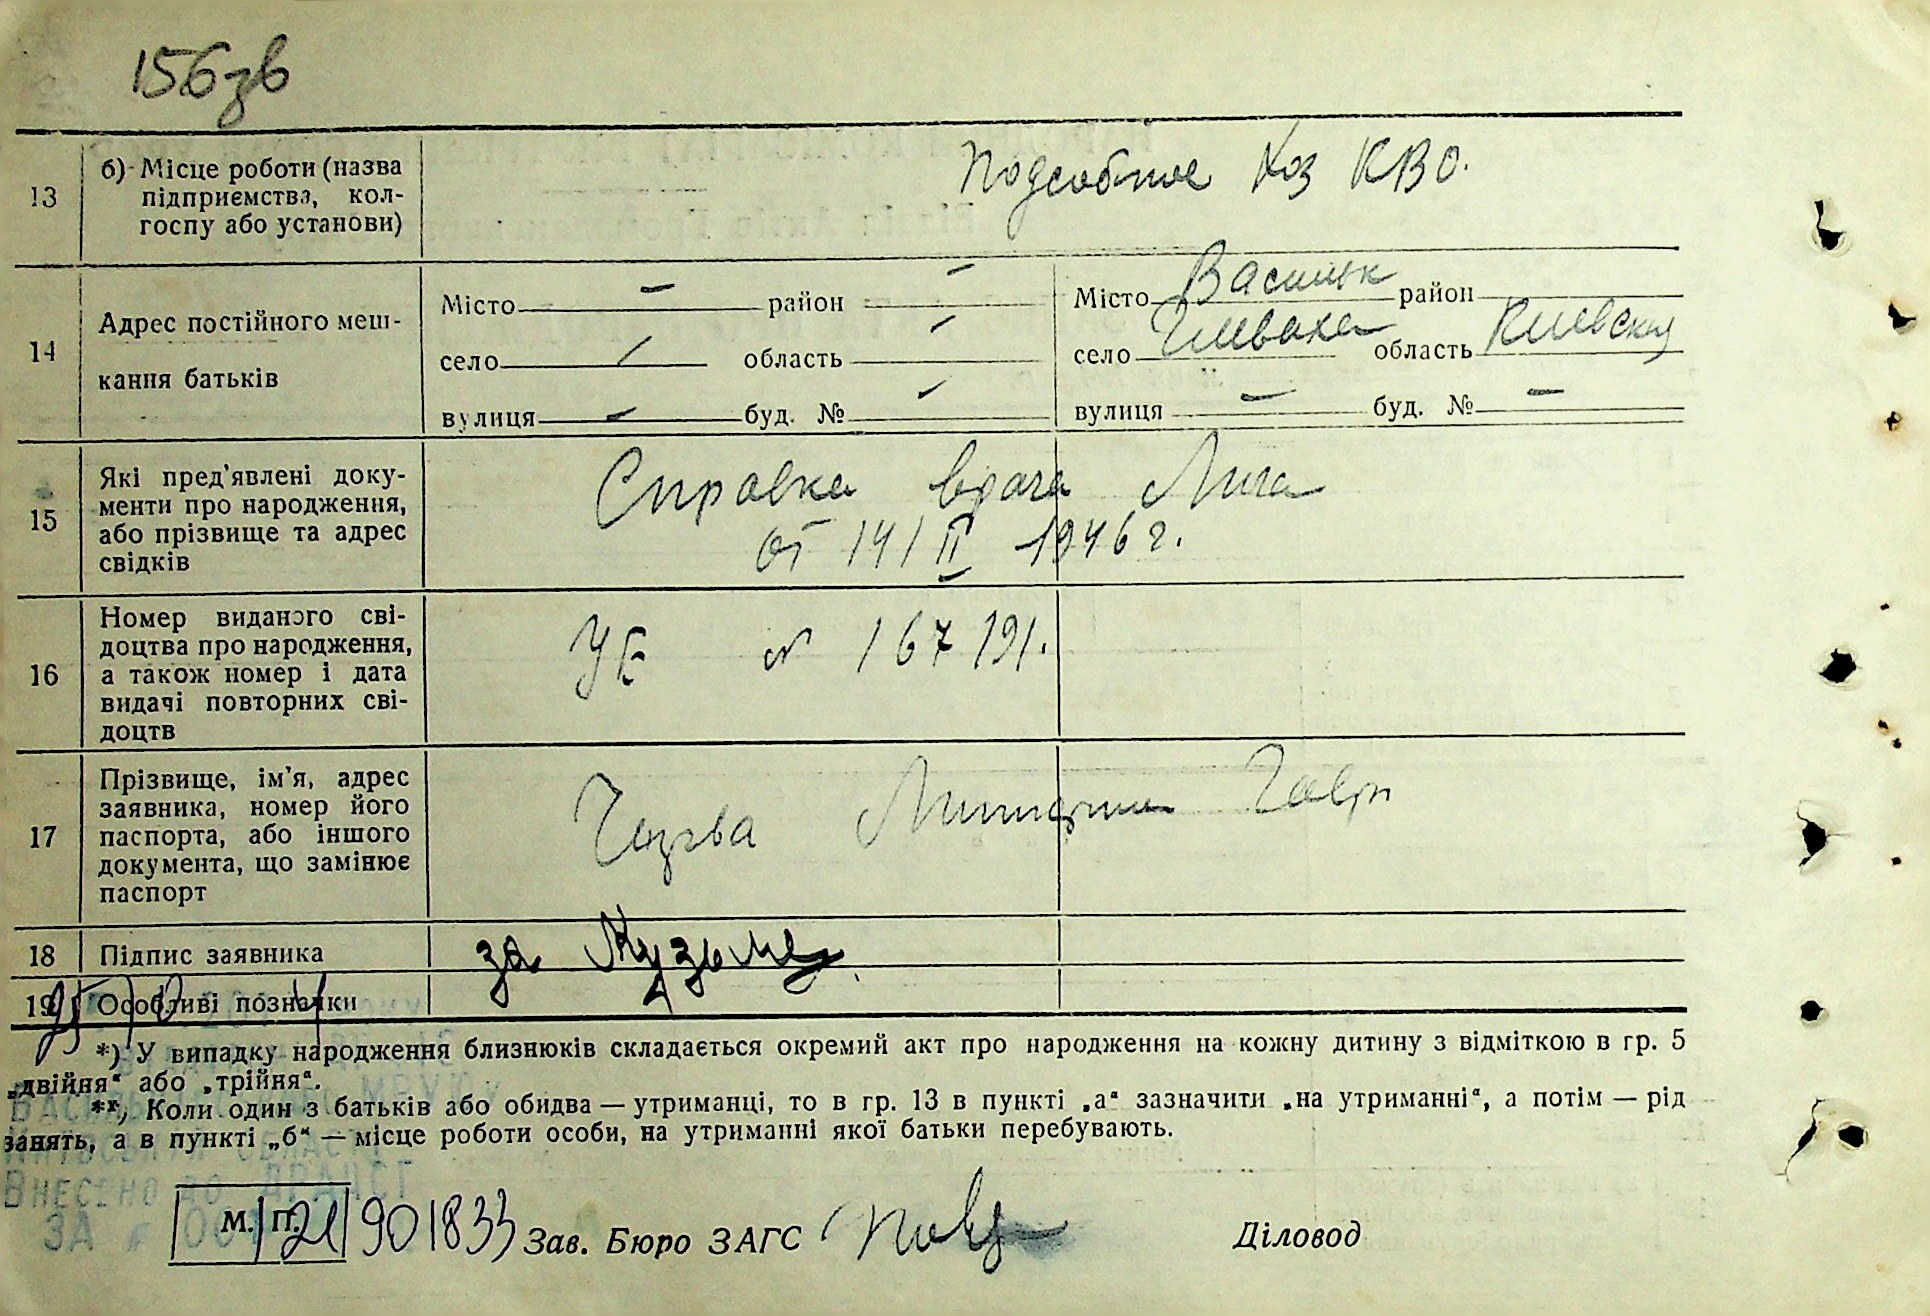 156зв
13 б) Місце роботи (назва
підприємства, кол-
госпу або установи)
Подсобное хоз КВО.
14 Адрес постійного меш-
кання батьків
Місто — район —
село — область —
вулиця — буд. № —
Місто Васильк район
село Глеваха область Киевская
вулиця — буд. № —
15 Які пред'явлені доку-
менти про народження,
або прізвище та адрес
свідків
Справка врача
от 14/II 1946 г.
16 Номер виданого сві-
доцтва про народження,
а також номер і дата
видачі повторних сві-
доцтв
УБ № 167191.
17 Прізвище, ім'я, адрес
заявника, номер його
паспорта, або іншого
документа, що замінює
паспорт
18 Підпис заявника
за
19 Особливі позначки
*) У випадку народження близнюків складається окремий акт про народження на кожну дитину з відміткою в гр. 5
„двійня“ або „трійня“.
**) Коли один з батьків або обидва — утриманці, то в гр. 13 в пункті „а“ зазначити „на утриманні“, а потім — рід
занять, а в пункті „б“ — місце роботи особи, на утриманні якої батьки перебувають.
Внесено до ДРАЦСГ
ЗА № 00
М. П. 901833 Зав. Бюро ЗАГС Діловод